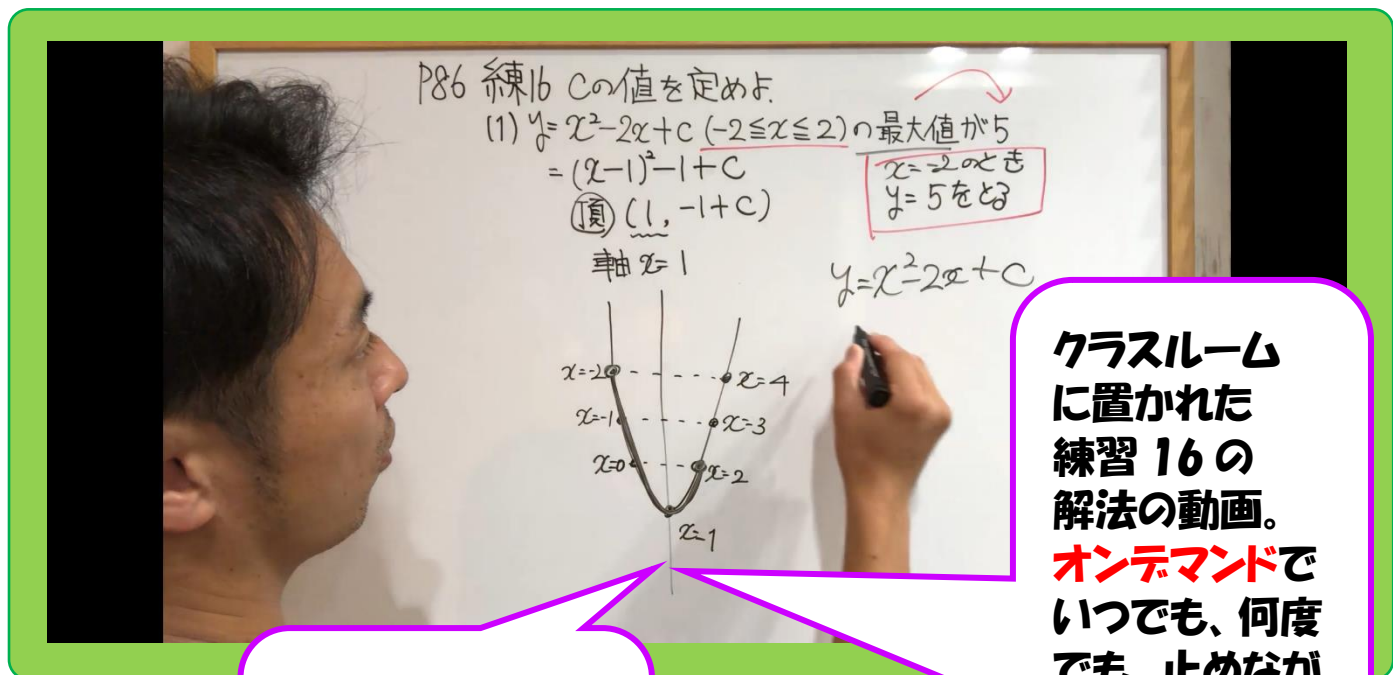 P86 練16 Cの値を定めよ.
(1) y=x²-2x+c (-2≦x≦2)の最大値が5
=(x-1)²-1+C
頂 (1, -1+C)
軸 x=1
x=-2のとき
y=5をとる
y=x²-2x+C
x=-2
x=4
x=-1
x=3
x=0
x=2
x=1
クラスルーム
に置かれた
練習 16 の
解法の動画。
オンデマンドで
いつでも、何度
でも、止めなが